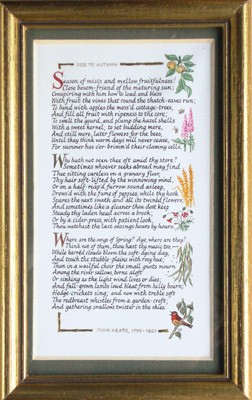 ODE TO AUTUMN
Season of mists and mellow fruitfulness!
Close bosom-friend of the maturing sun;
Conspiring with him how to load and bless
With fruit the vines that round the thatch-eaves run;
To bend with apples the moss'd cottage-trees,
And fill all fruit with ripeness to the core;
To swell the gourd, and plump the hazel shells
With a sweet kernel; to set budding more,
And still more, later flowers for the bees,
Until they think warm days will never cease,
For summer has o'er-brimm'd their clammy cells.
Who hath not seen thee oft amid thy store?
Sometimes whoever seeks abroad may find
Thee sitting careless on a granary floor,
Thy hair soft-lifted by the winnowing wind,
Or on a half-reap'd furrow sound asleep,
Drows'd with the fume of poppies, while thy hook
Spares the next swath and all its twinèd flowers,
And sometimes like a gleaner thou dost keep
Steady thy laden head across a brook;
Or by a cider-press, with patient look,
Thou watchest the last oozings hours by hours.
Where are the songs of Spring? Aye, where are they?
Think not of them, thou hast thy music too,—
While barred clouds bloom the soft-dying day,
And touch the stubble-plains with rosy hue;
Then in a wailful choir the small gnats mourn
Among the river sallows, borne aloft
Or sinking as the light wind lives or dies;
And full-grown lambs loud bleat from hilly bourn;
Hedge crickets sing; and now with treble soft
The redbreast whistles from a garden-croft,
And gathering swallows twitter in the skies.
JOHN KEATS, 1795-1821